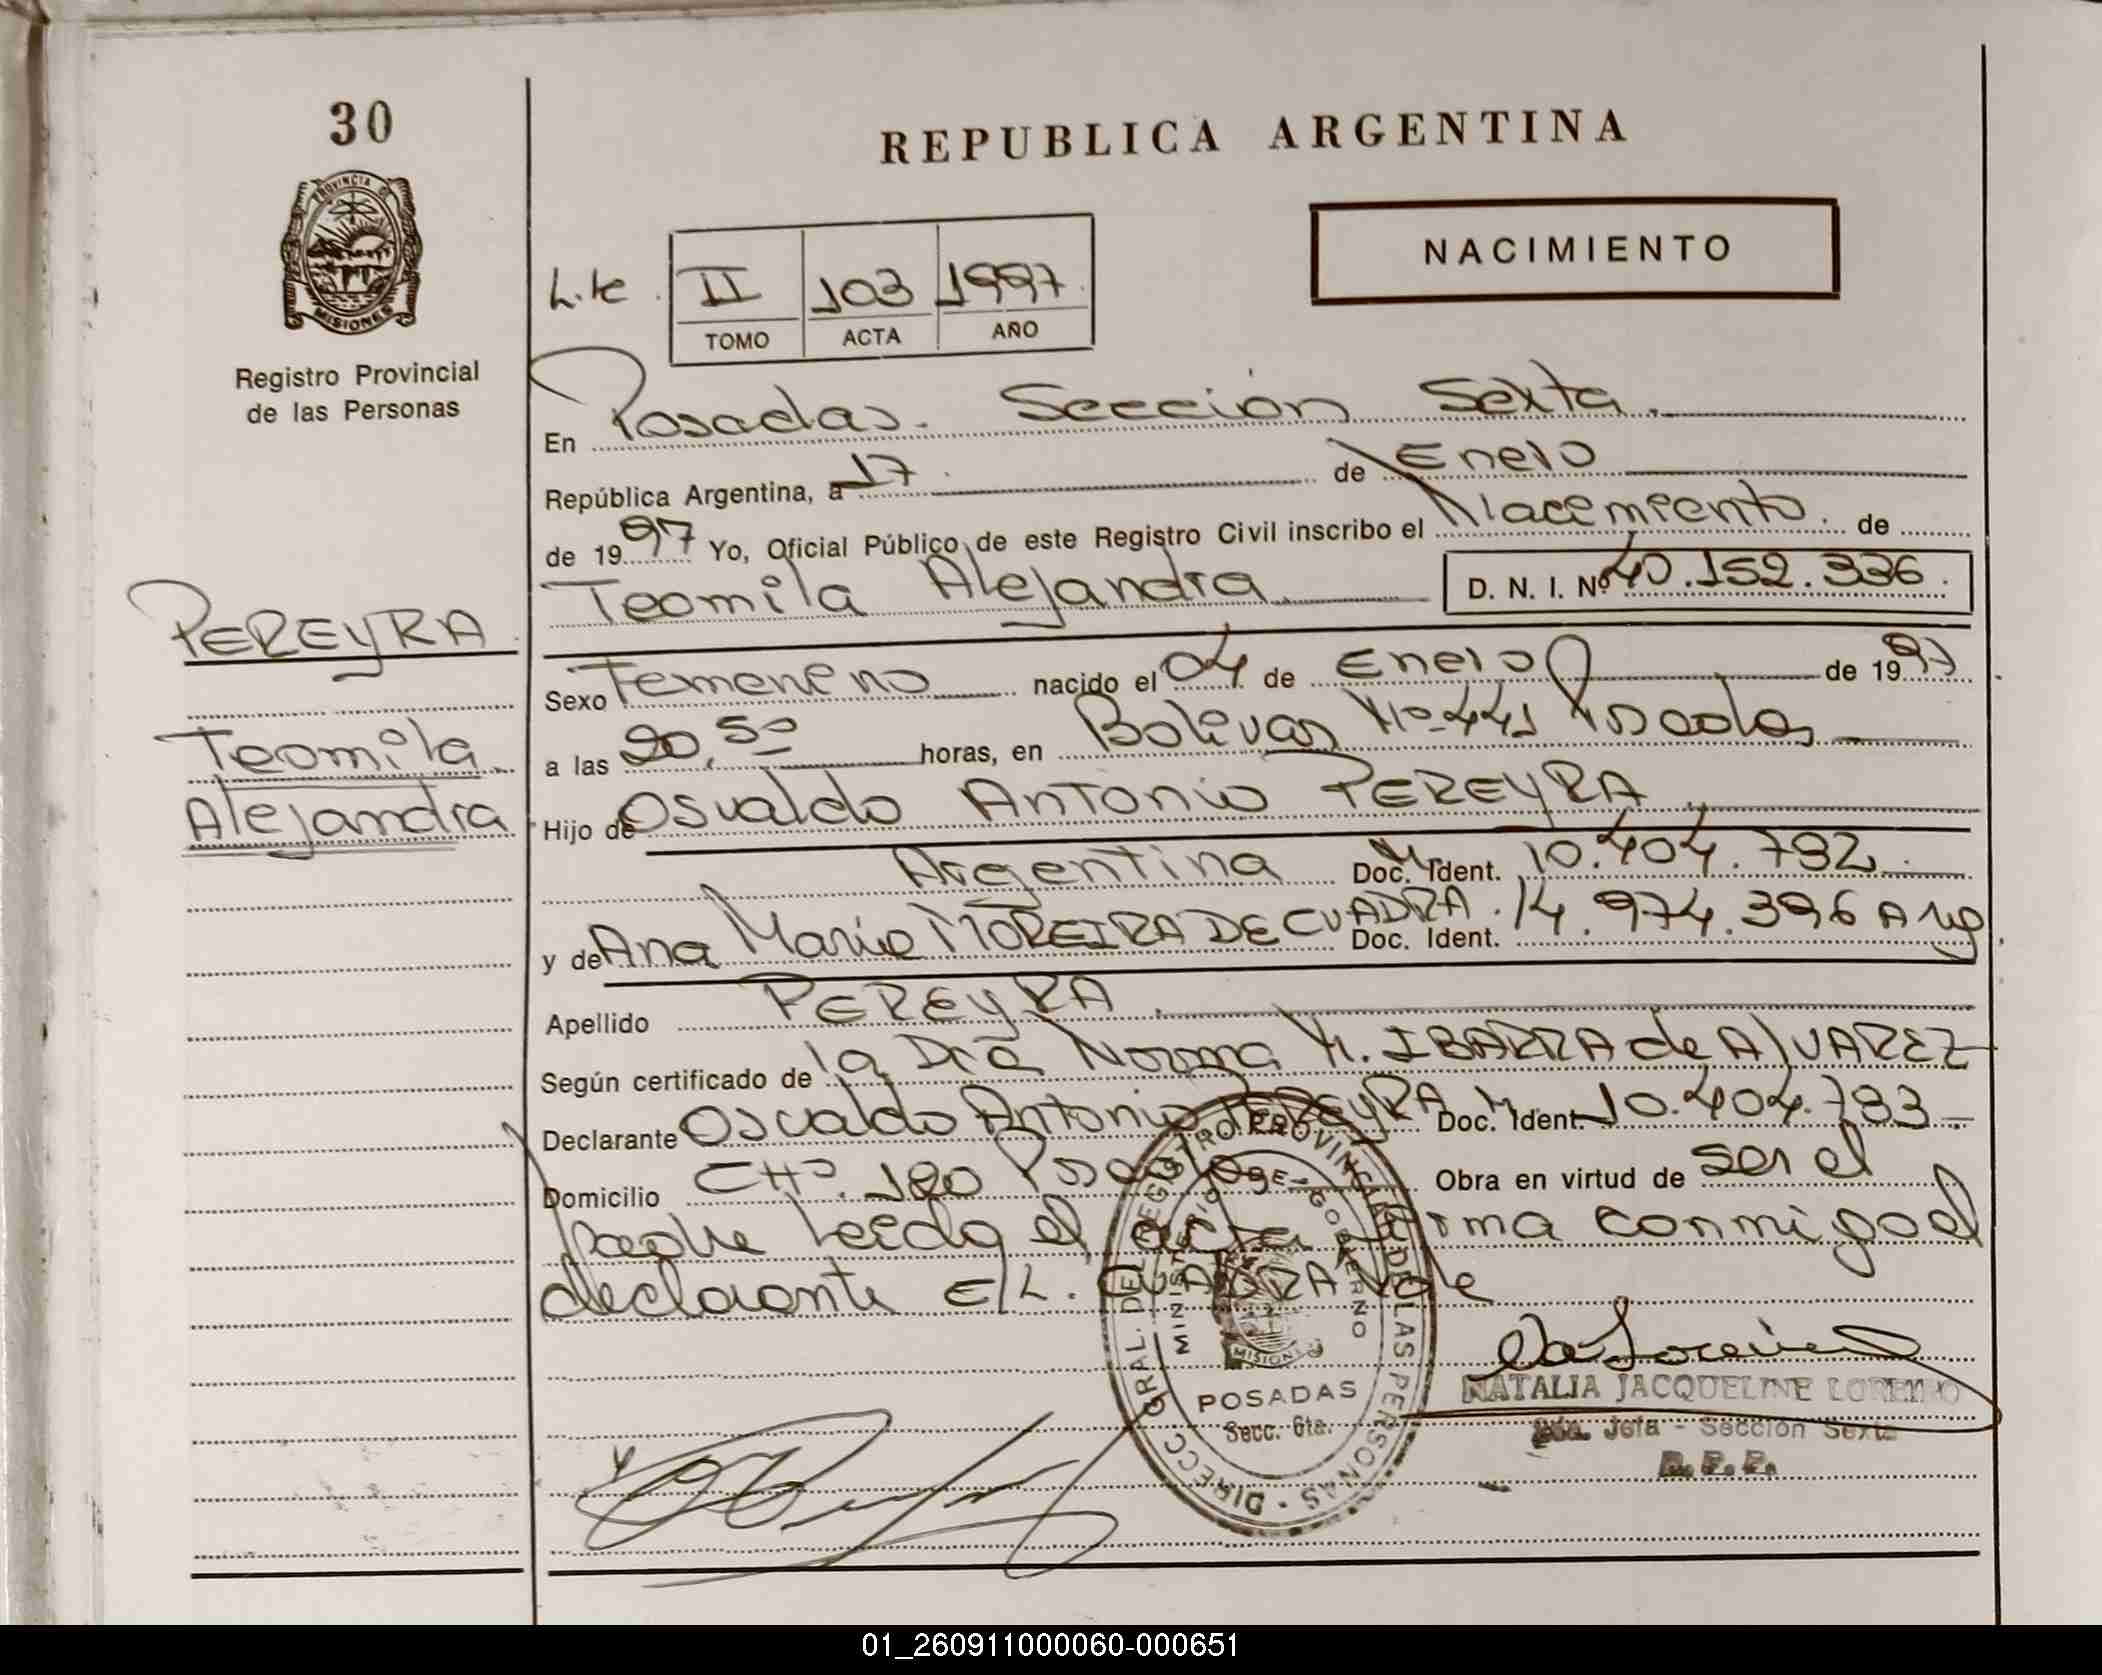 30
PROVINCIA DE
MISIONES
Registro Provincial
de las Personas
REPUBLICA ARGENTINA
NACIMIENTO
II 103 1997
TOMO ACTA AÑO
En Posadas. Sección Sexta.
República Argentina, a 17 de Enero
de 1997 Yo, Oficial Público de este Registro Civil inscribo el Nacimiento. de
Teomila Alejandra D. N. I. Nº 40.152.336.
PEREYRA
Teomila
Alejandra
Sexo Femenino nacido el 04 de Enero de 1997
a las 20,50 horas, en Bolivar Nº 441 Posadas
Hijo de Osvaldo Antonio PEREYRA
Argentina Doc. Ident. 10.404.792
y de Ana Maria MOREIRA DE CUADRA. Doc. Ident. 14.974.396 Arg
Apellido PEREYRA
Según certificado de la Dra Norma M. IBARRA de ALVAREZ
Declarante Osvaldo Antonio PEREYRA Doc. Ident. 10.404.793.
Domicilio CHº. 180 Posadas Obra en virtud de ser el
padre Leida el acta firma conmigo el
declarante E/L. CUADRA Vale
DIRECC. GRAL. DEL REGISTRO PROVINCIAL DE LAS PERSONAS
MINISTERIO DE GOBIERNO
MISIONES
POSADAS
Secc. 6ta.
NATALIA JACQUELINE LOREIRO
Jefa - Sección Sexta
R. P. P.
01_260911000060-000651